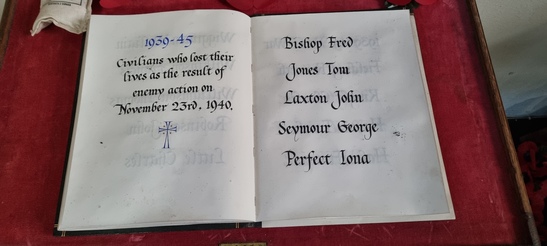 1939-45
Civilians who lost their
lives as the result of
enemy action on
November 23rd, 1940.
Bishop Fred
Jones Tom
Laxton John
Seymour George
Perfect Iona